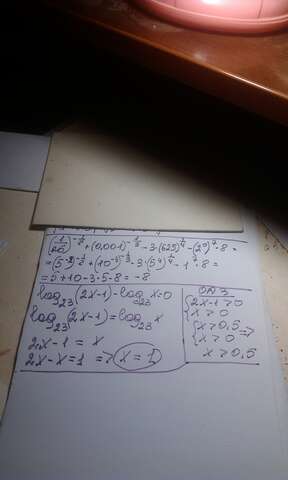 (1/25)^(-1/2) + (0,001)^(-1/3) - 3·(625)^(1/4) - (2⁰)²·8 =
= (5⁻²)^(-1/2) + (10⁻³)^(-1/3) - 3·(5⁴)^(1/4) - 1²·8 =
= 5 + 10 - 3·5 - 8 = -8
log₂₃(2x-1) - log₂₃ x = 0
log₂₃(2x-1) = log₂₃ x
2x - 1 = x
2x - x = 1 => x = 1
ОДЗ
{2x-1>0
{x>0
{x>0,5 =>
{x>0
x>0,5